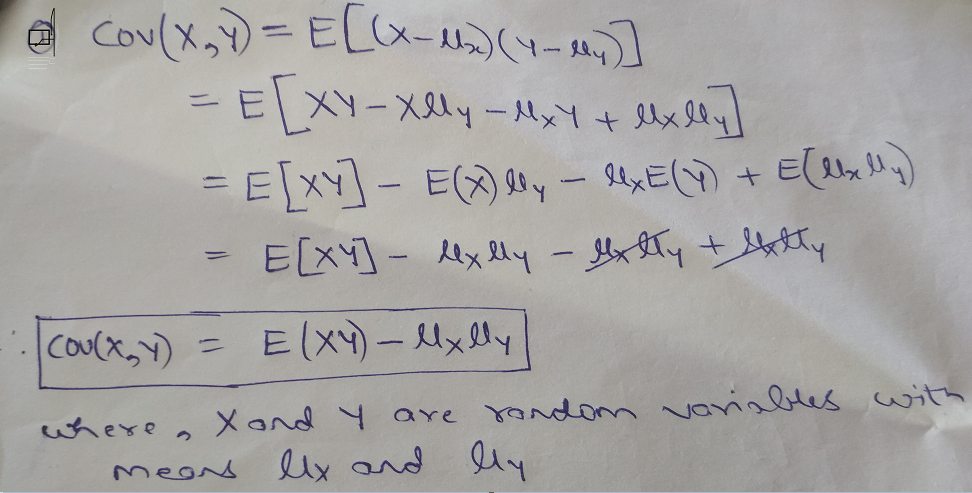 Cov(X,Y) = E[(X-μx)(Y-μy)]
= E[XY-Xμy-μxY+μxμy]
= E[XY] - E(X)μy - μxE(Y) + E(μxμy)
= E[XY] - μxμy - μxμy + μxμy
∴ Cov(X,Y) = E(XY)-μxμy
where, X and Y are random variables with
means μx and μy